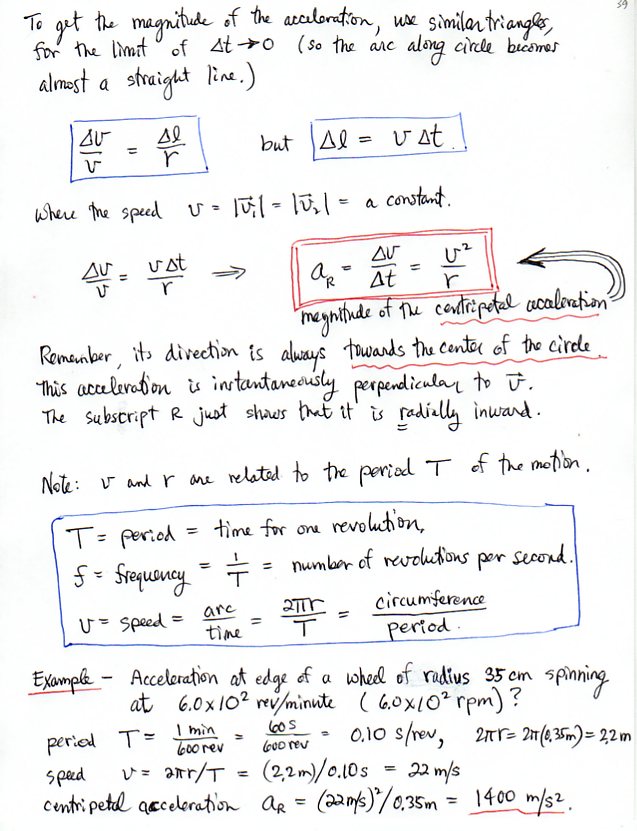 39
To get the magnitude of the acceleration, use similar triangles,
for the limit of Δt→0 (so the arc along circle becomes
almost a straight line.)
Δv/v = Δl/r but Δl = v Δt.
where the speed v = |v⃗₁| = |v⃗₂| = a constant.
Δv/v = vΔt/r ⇒ a_R = Δv/Δt = v²/r
magnitude of the centripetal acceleration
Remember, its direction is always towards the center of the circle.
This acceleration is instantaneously perpendicular to v⃗.
The subscript R just shows that it is radially inward.
Note: v and r are related to the period T of the motion.
T = period = time for one revolution,
f = frequency = 1/T = number of revolutions per second.
v = speed = arc/time = 2πr/T = circumference/period.
Example – Acceleration at edge of a wheel of radius 35 cm spinning
at 6.0×10² rev/minute (6.0×10² rpm)?
period T = 1 min/600 rev = 60 s/600 rev = 0.10 s/rev, 2πr = 2π(0.35m) = 2.2m
speed v = 2πr/T = (2.2m)/0.10s = 22 m/s
centripetal acceleration a_R = (22m/s)²/0.35m = 1400 m/s².